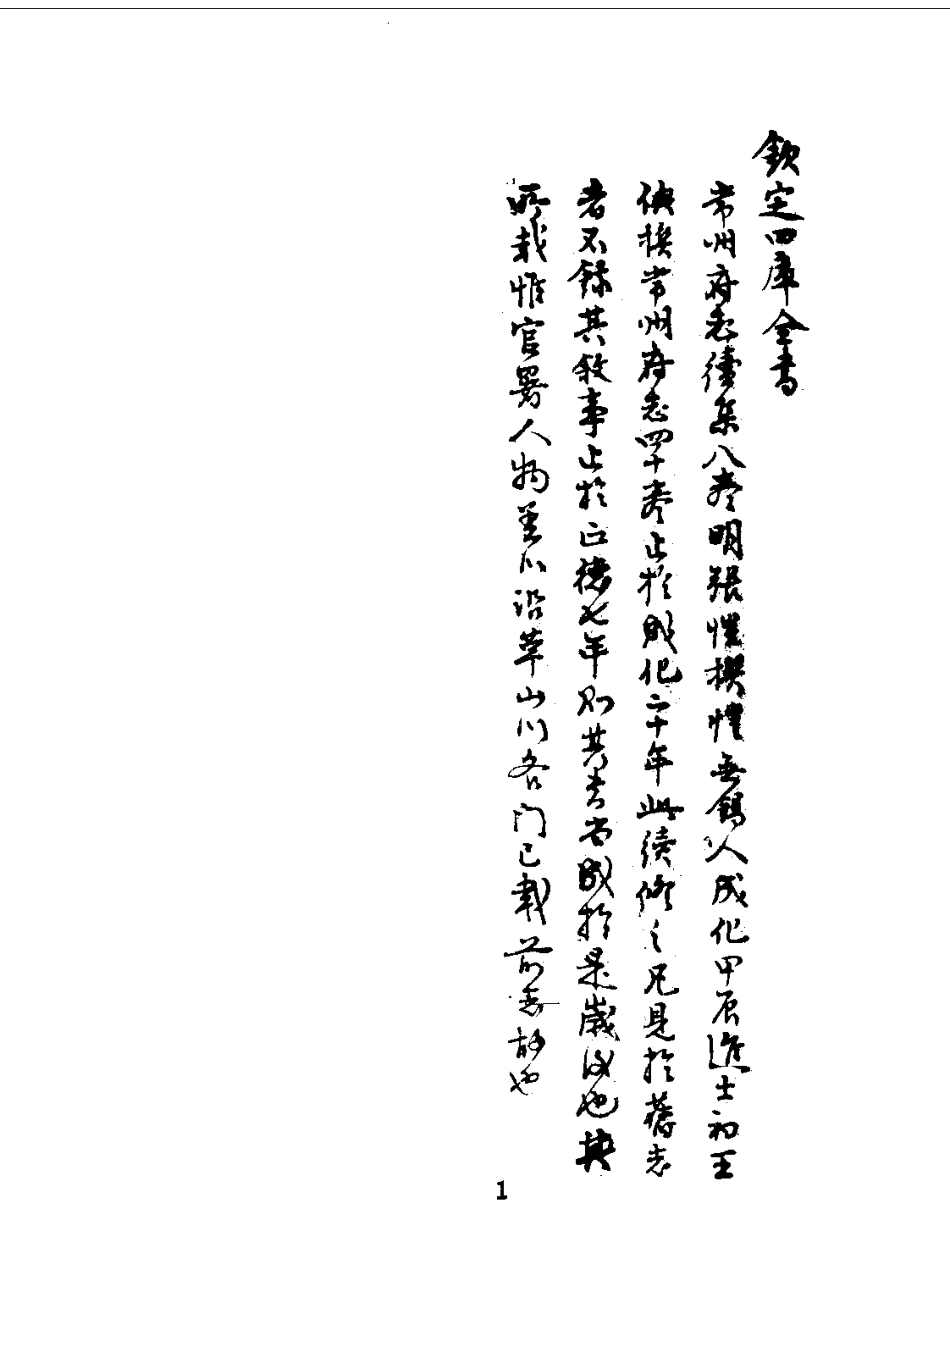 欽定四庫全書
常州府志續集八卷明張愷撰愷無錫人成化甲辰進士初王
㒟撰常州府志四十卷止於成化二十年此續修之凡見於舊志
者不錄其敘事止於正德七年則其書當成於是歲後也其
所載惟官署人物差以沿革山川各門已載前志故也
1